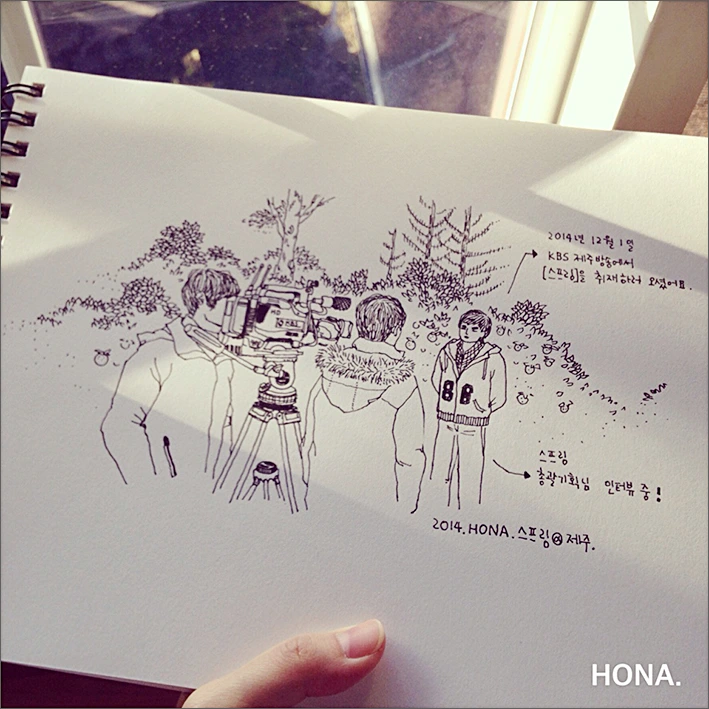 2014년 12월 1일
KBS 제주방송에서
[스프링]을 취재하러 오셨어요.
88
스프링
총괄기획님 인터뷰 중!
2014. HONA. 스프링@제주.
HONA.